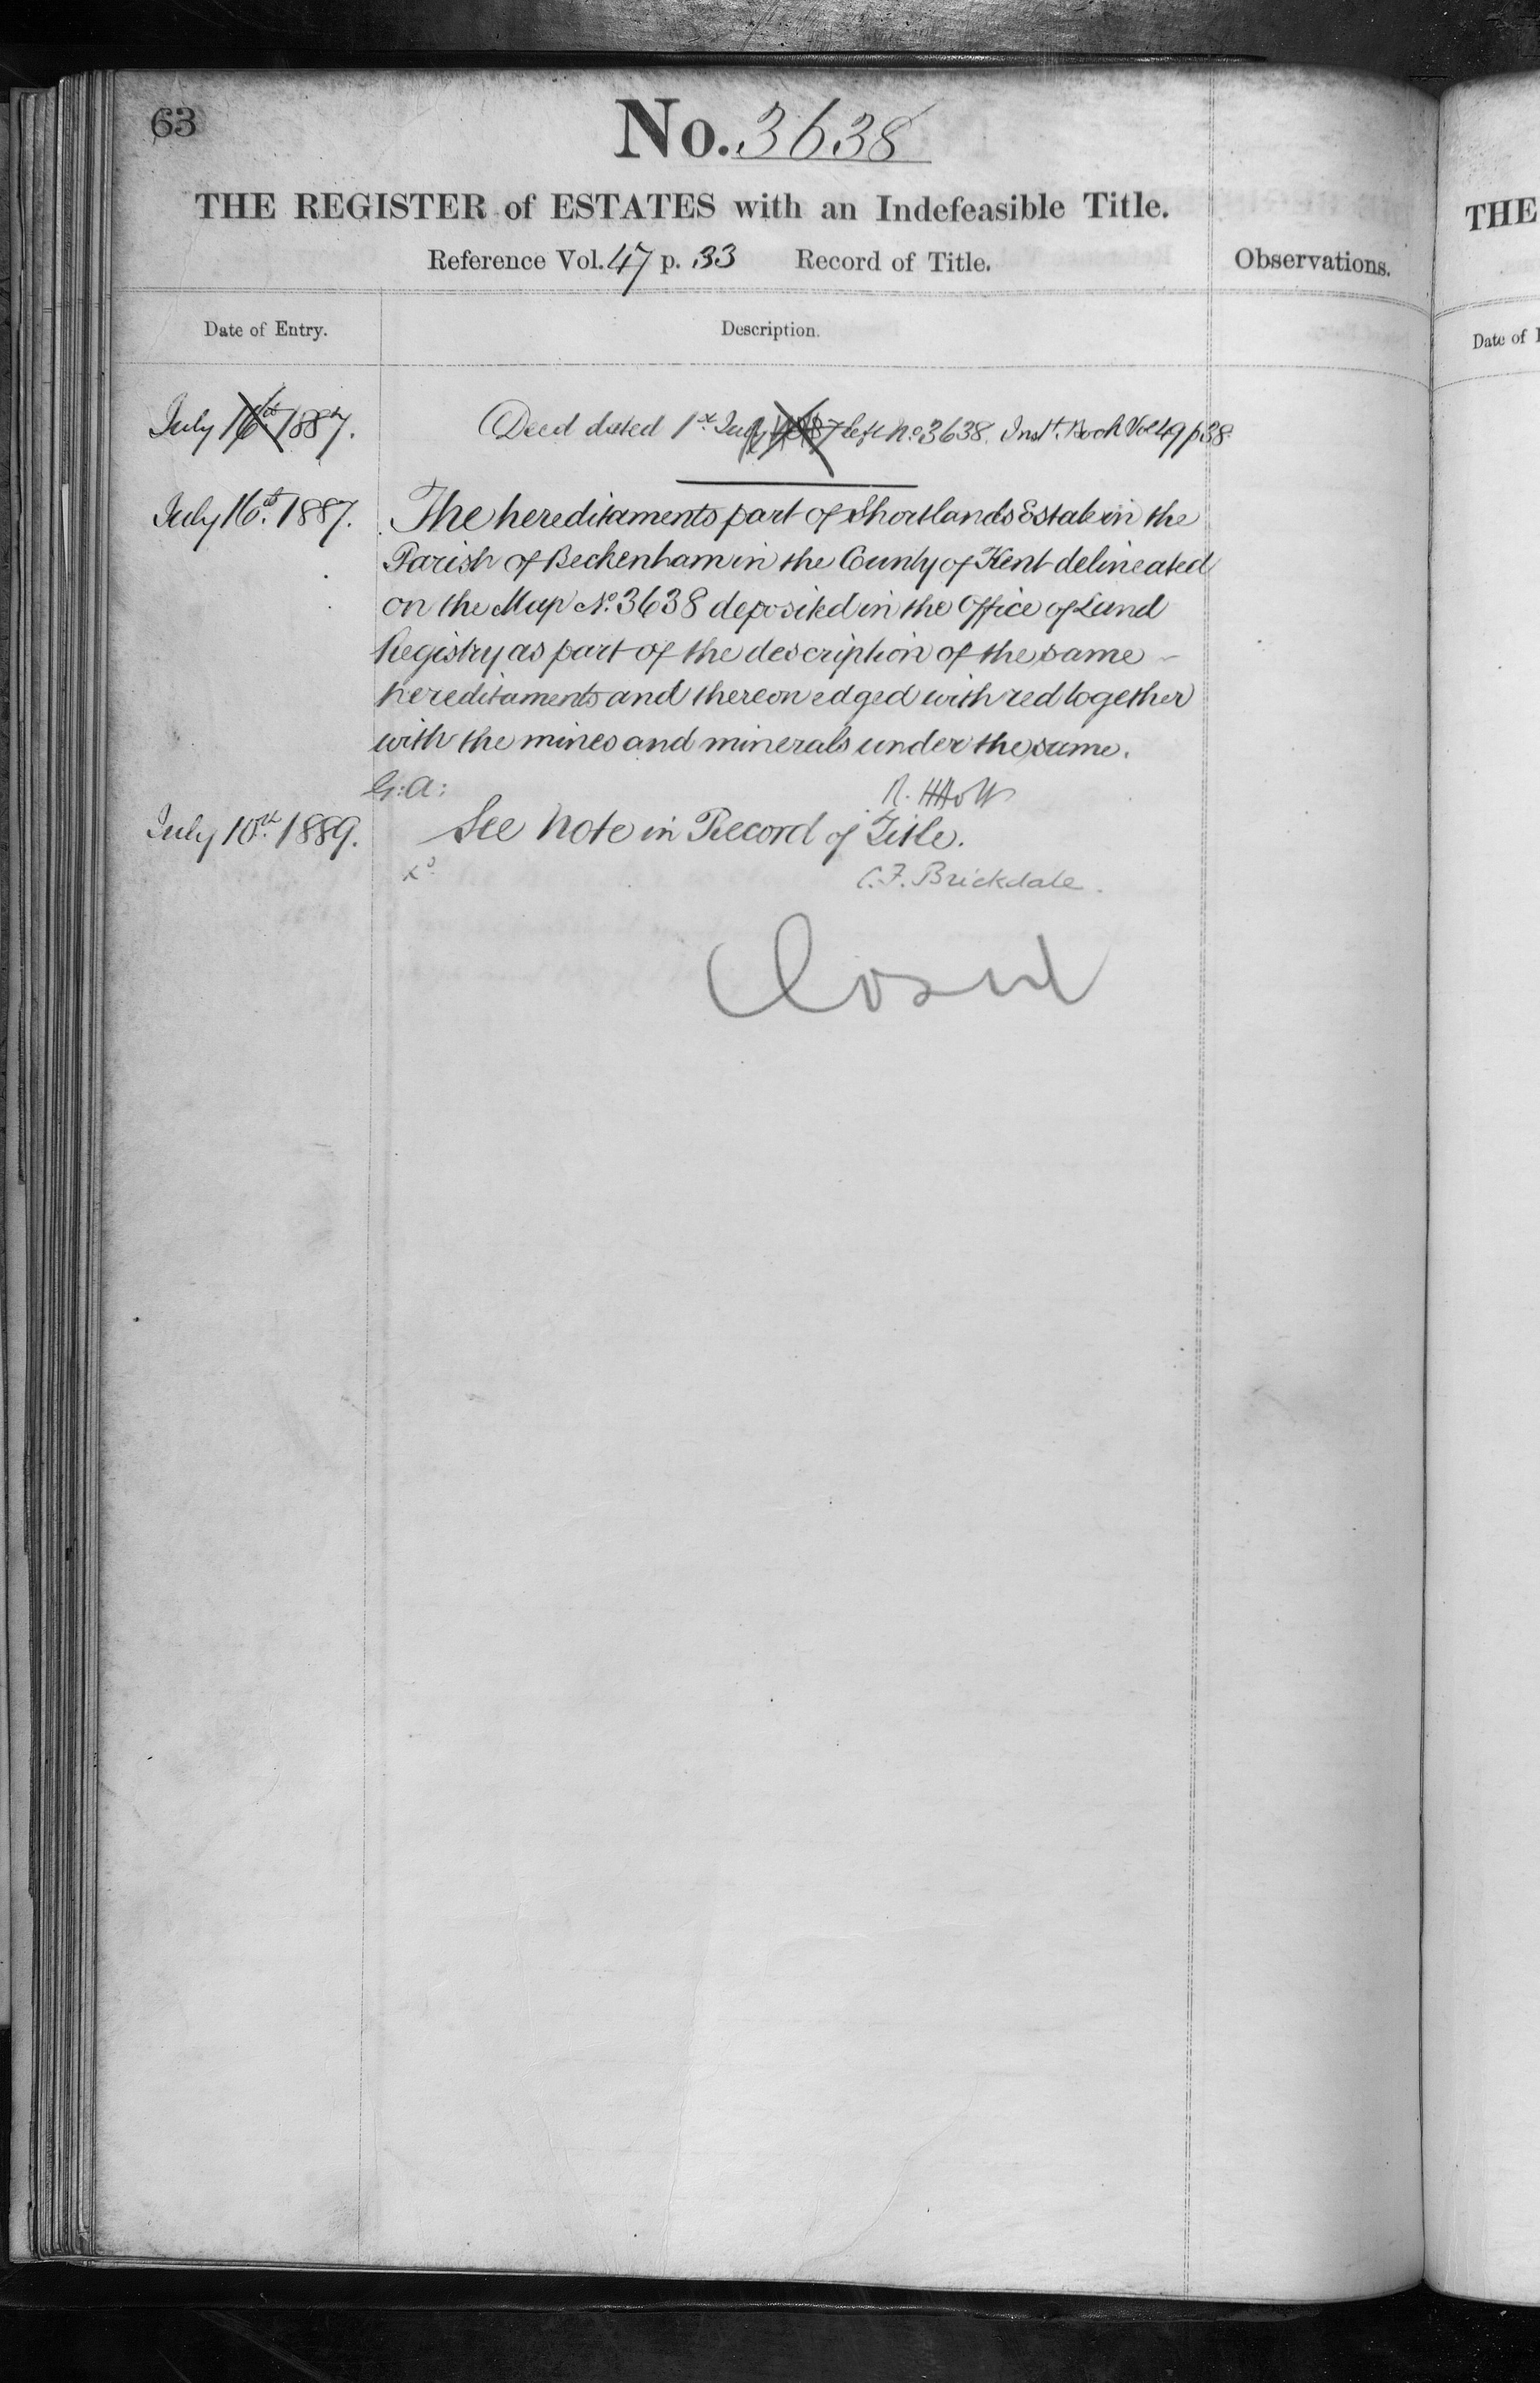 63
No. 3638
THE REGISTER of ESTATES with an Indefeasible Title.
Reference Vol. 47 p. 33 Record of Title.
Observations.
Date of Entry.
Description.
July 16th 1887.
Deed dated 1st July 1887 left No 3638. Inst. Book Vol 49 p 38.
July 16th 1887.
The hereditaments part of Shortlands Estate in the
Parish of Beckenham in the County of Kent delineated
on the Map No. 3638 deposited in the Office of Land
Registry as part of the description of the same
hereditaments and thereon edged with red together
with the mines and minerals under the same.
G: A:
R. H Holt
July 10th 1889.
See Note in Record of Title.
C. F. Brickdale.
Closed
THE
Date of